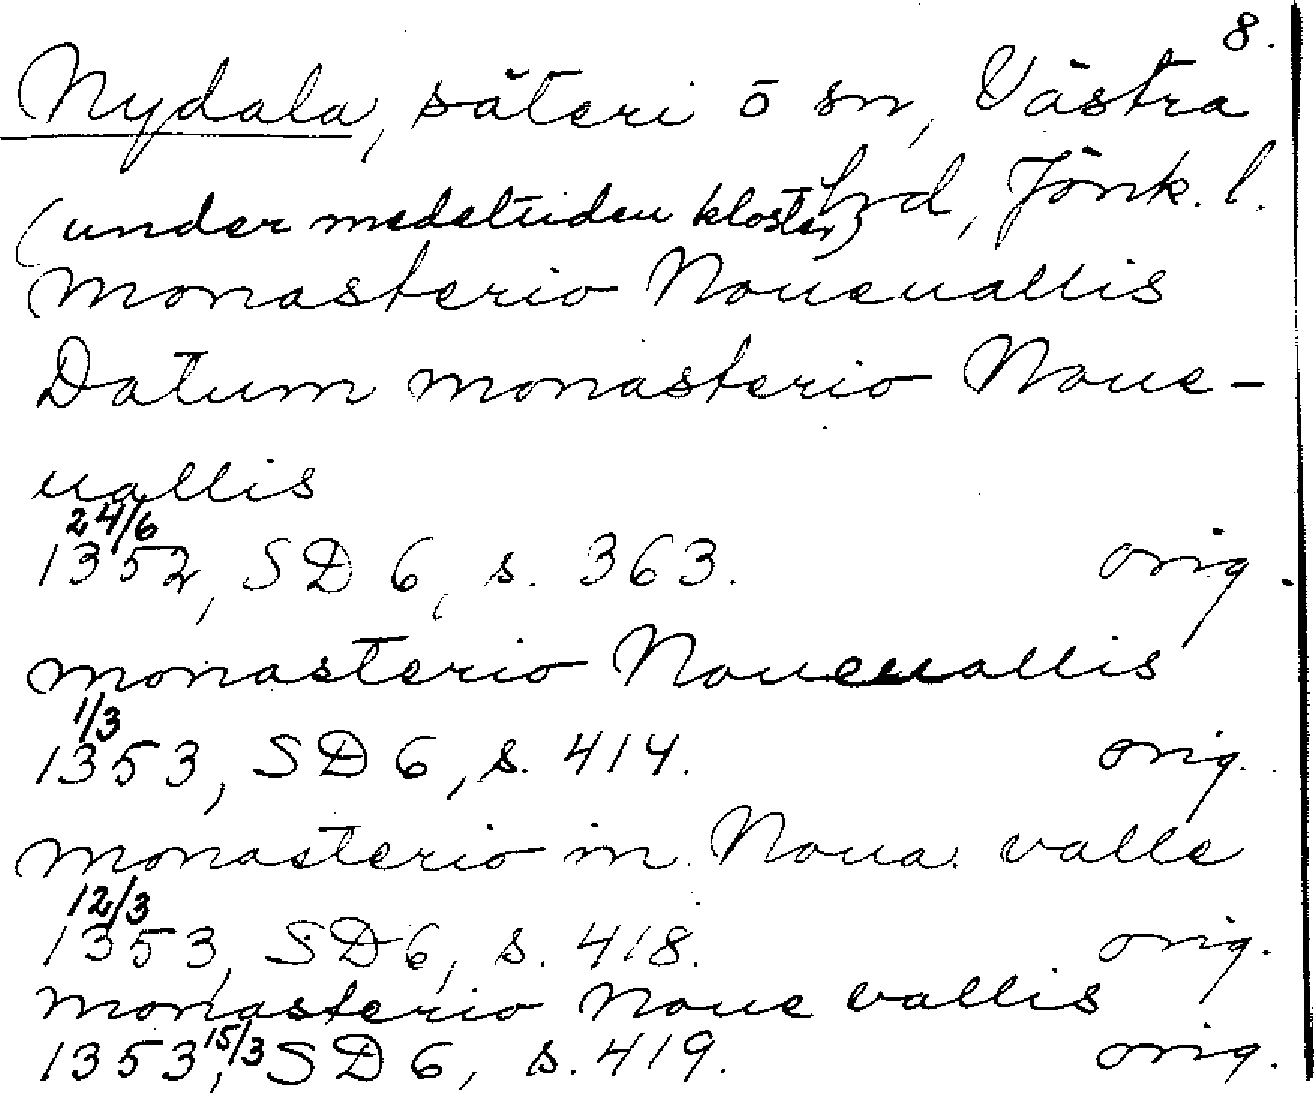 8.
Nydala, säteri o sn, Västra
hrd, Jönk. l.
(under medeltiden kloster)
monasterio Noueuallis
Datum monasterio Noue-
uallis
24/6
1352, SD 6, s. 363. orig.
monasterio Noueuallis
1/3
1353, SD 6, s. 414. orig.
monasterio in Noua valle
12/3
1353, SD 6, s. 418. orig.
monasterio Noue vallis
1353, 15/3 SD 6, s. 419. orig.